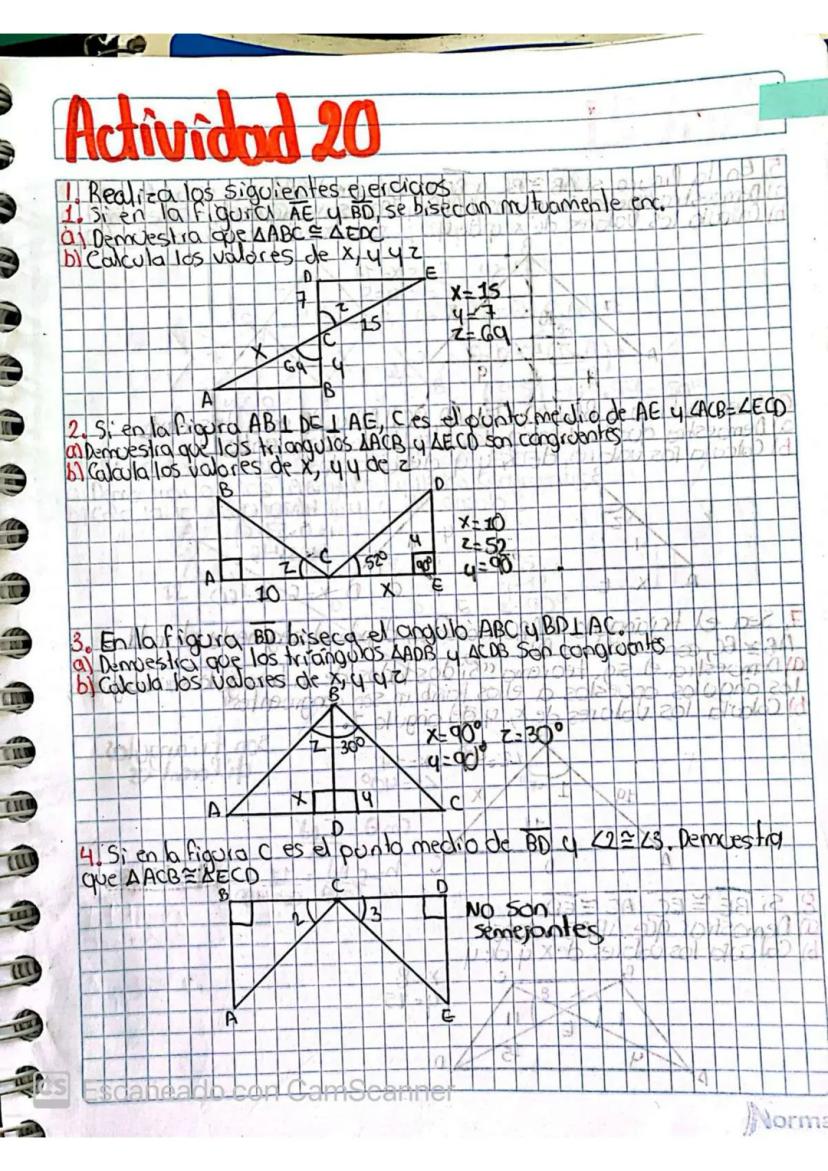 Actividad 20
1. Realiza los siguientes ejercicios
1. Si en la figura AE y BD, se bisecan mutuamente enc.
a) Demuestra que ΔABC ≅ ΔEDC
b) Calcula los valores de x, y y z
D E
7 z
15
C
x 69 y
A B
x=15
y=7
z=69
2. Si en la figura AB⊥DE⊥AE, C es el punto medio de AE y ∠ACB=∠ECD
a) Demuestra que los triangulos ΔACB y ΔECD son congruentes
b) Calcula los valores de x, y y de z
B D
y
A z C 52° 90° E
10 x
x=10
z=52
y=90
3. En la figura BD biseca el angulo ABC y BD⊥AC.
a) Demuestra que los triángulos ΔADB y ΔCDB son congruentes
b) Calcula los valores de x, y y z
B
z 30°
A x y C
D
x=90° z=30°
y=90°
4. Si en la figura C es el punto medio de BD y ∠2≅∠3. Demuestra
que ΔACB≅ΔECD
B C D
2 3
A E
No son
semejantes
CS Escaneado con CamScanner
Norma